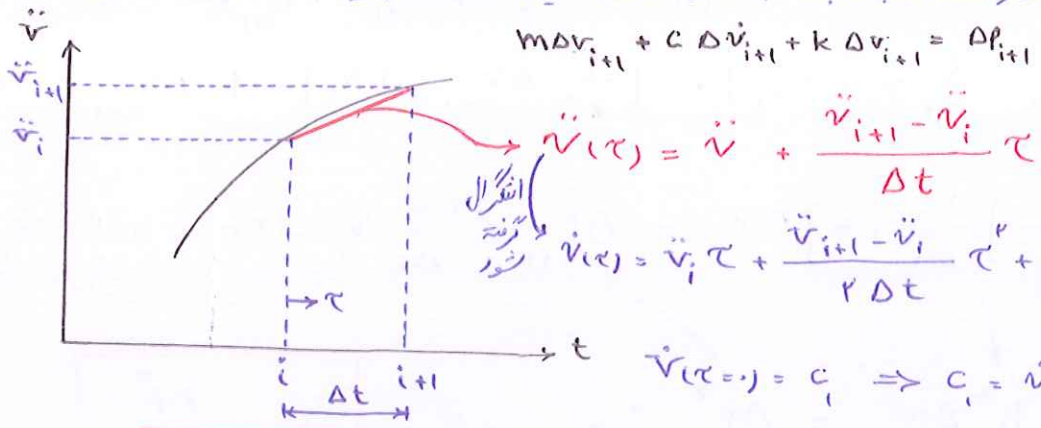 v̈
v̈ᵢ₊₁
v̈ᵢ
mΔvᵢ₊₁ + c Δv̇ᵢ₊₁ + k Δvᵢ₊₁ = Δpᵢ₊₁
v̈(τ) = v̈ + (v̈ᵢ₊₁ - v̈ᵢ)/Δt τ
انتگرال
گرفته
شود
v̇(τ) = v̈ᵢ τ + (v̈ᵢ₊₁ - v̈ᵢ)/(۲Δt) τ^۲ +
→ τ
t
i
i+1
Δt
v̇(τ=۰) = c₁ => c₁ = v̇